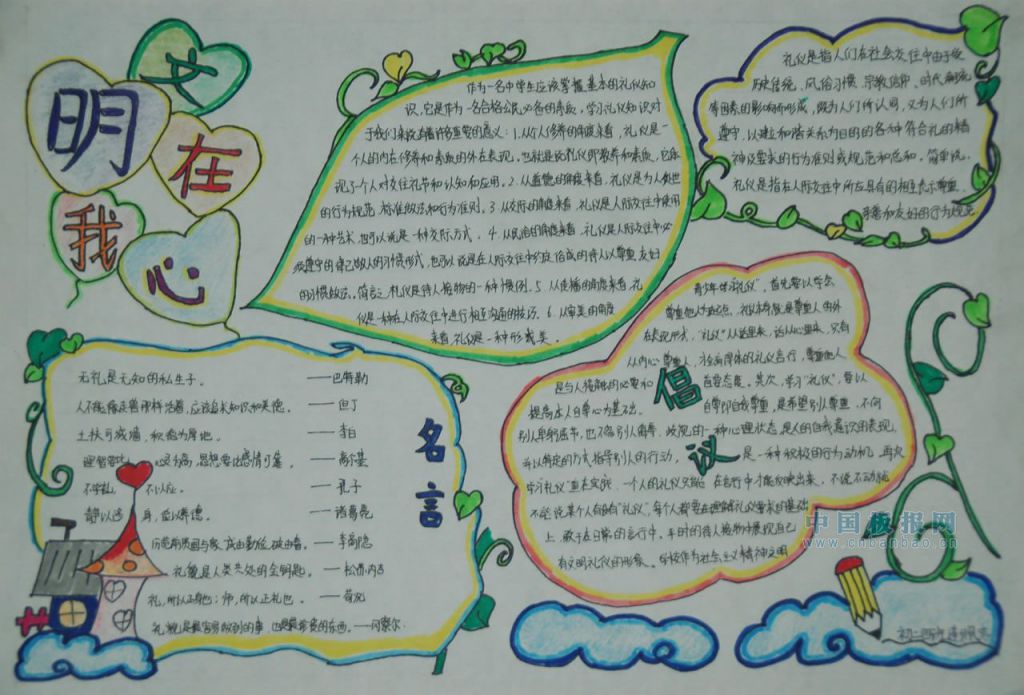 文
明
在
我
心
作为一名中学生应该掌握基本的礼仪知
识,它是作为一名合格公民必备的素质,学习礼仪知识对
于我们来说有着许多重要的意义:1.从个人修养的角度来看,礼仪是一
个人的内在修养和素质的外在表现。也就是说礼仪即教养和素质,它体
现了个人对交往礼节和认知和应用。2.从道德的角度来看,礼仪是为人处世
的行为规范,标准做法和行为准则。3.从交际的角度来看,礼仪是人际交往中使用
的一种艺术,也可以说是一种交际方式。4.从民俗的角度来看,礼仪是人际交往中必
须遵守的律己敬人的习惯形式,也可以说是在人际交往中约定俗成的待人以尊重、友好
的习惯做法。简言之,礼仪是待人接物的一种惯例。5.从传播的角度来看,礼
仪是一种在人际交往中进行相互沟通的技巧。6.从审美的角度
来看,礼仪是一种形式美。
礼仪是指人们在社会交往中由于受
历史传统、风俗习惯、宗教信仰、时代潮流
等因素的影响而形成,既为人们所认同,又为人们所
遵守,以建立和谐关系为目的的各种符合礼的精
神及要求的行为准则或规范和总和。简单说,
礼仪是指在人际交往中所应具有的相互表示尊重、
亲善和友好的行为规范
名言
无礼是无知的私生子。 ——巴特勒
人不能像走兽那样活着,应该追求知识和美德。 ——但丁
土扶可成墙,积德为厚地。 ——李白
——高尔基
不学礼,不以立。 ——孔子
静以修身,俭以养德。 ——诸葛亮
历览前贤国与家,成由勤俭,破由奢。——李商隐
礼貌是人类共处的金钥匙。 ——松苏内吉
礼,所以正身也;师,所以正礼也。 ——荀况
礼貌是最容易做到的事,也是最珍贵的东西。——冈察尔
倡
议
青少年学习礼仪",首先要以学会
尊重他人为起点。礼仪本身就是尊重人的外
在表现形式,"礼仪"从话里来,话从心里来,只有
从内心尊重人,才会有得体的礼仪言行,尊重他人
是与人接触的必要和首要态度。其次,学习"礼仪",要以
提高个人自尊心为基础。自尊即自我尊重,是希望别人尊重,不向
别人卑躬屈节,也不容别人侮辱、歧视的一种心理状态,是人的自我意识的表现,
并以特定的方式指导别人的行动,是一种积极的行为动机。再次
学习礼仪"重在实践。一个人的礼仪只能在言行中才能反映出来,不说不动就
不能说某个人有没有"礼仪",每个人都要在理解礼仪要求的基础
上,敢于在日常的言行中,平时的待人接物中展现自己
有文明礼仪的形象。学校作为社会主义精神文明
中国板报网
www.chbanbao.cn